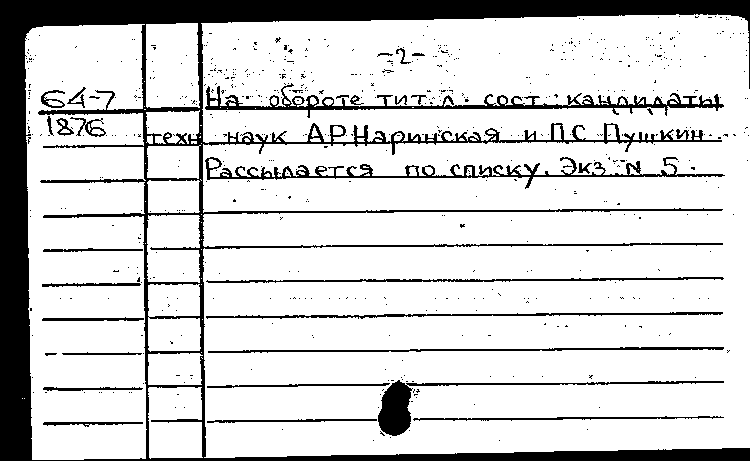 -2-
64-7
1876
На обороте тит. л. сост.: кандидаты
техн наук А.Р.Наринская и П.С Пушкин.
Рассылается по списку. Экз. N 5.